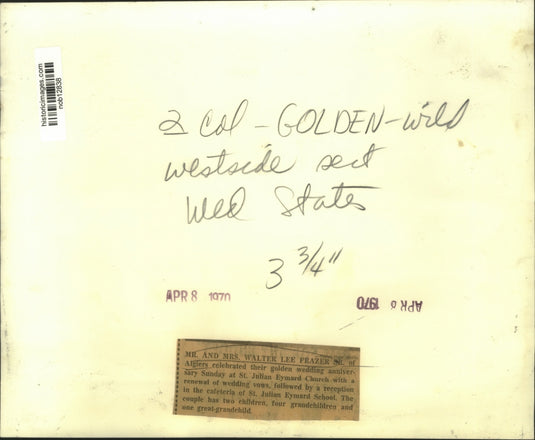 historicimages.com
nob12838
2 Col - GOLDEN - wild
westside sect
Wed States
3 3/4"
APR 8 1970
APR 8 1970
MR. AND MRS. WALTER LEE FRAZER SR. of
Algiers celebrated their golden wedding anniver-
sary Sunday at St. Julian Eymard Church with a
renewal of wedding vows, followed by a reception
in the cafeteria of St. Julian Eymard School. The
couple has two children, four grandchildren and
one great-grandchild.